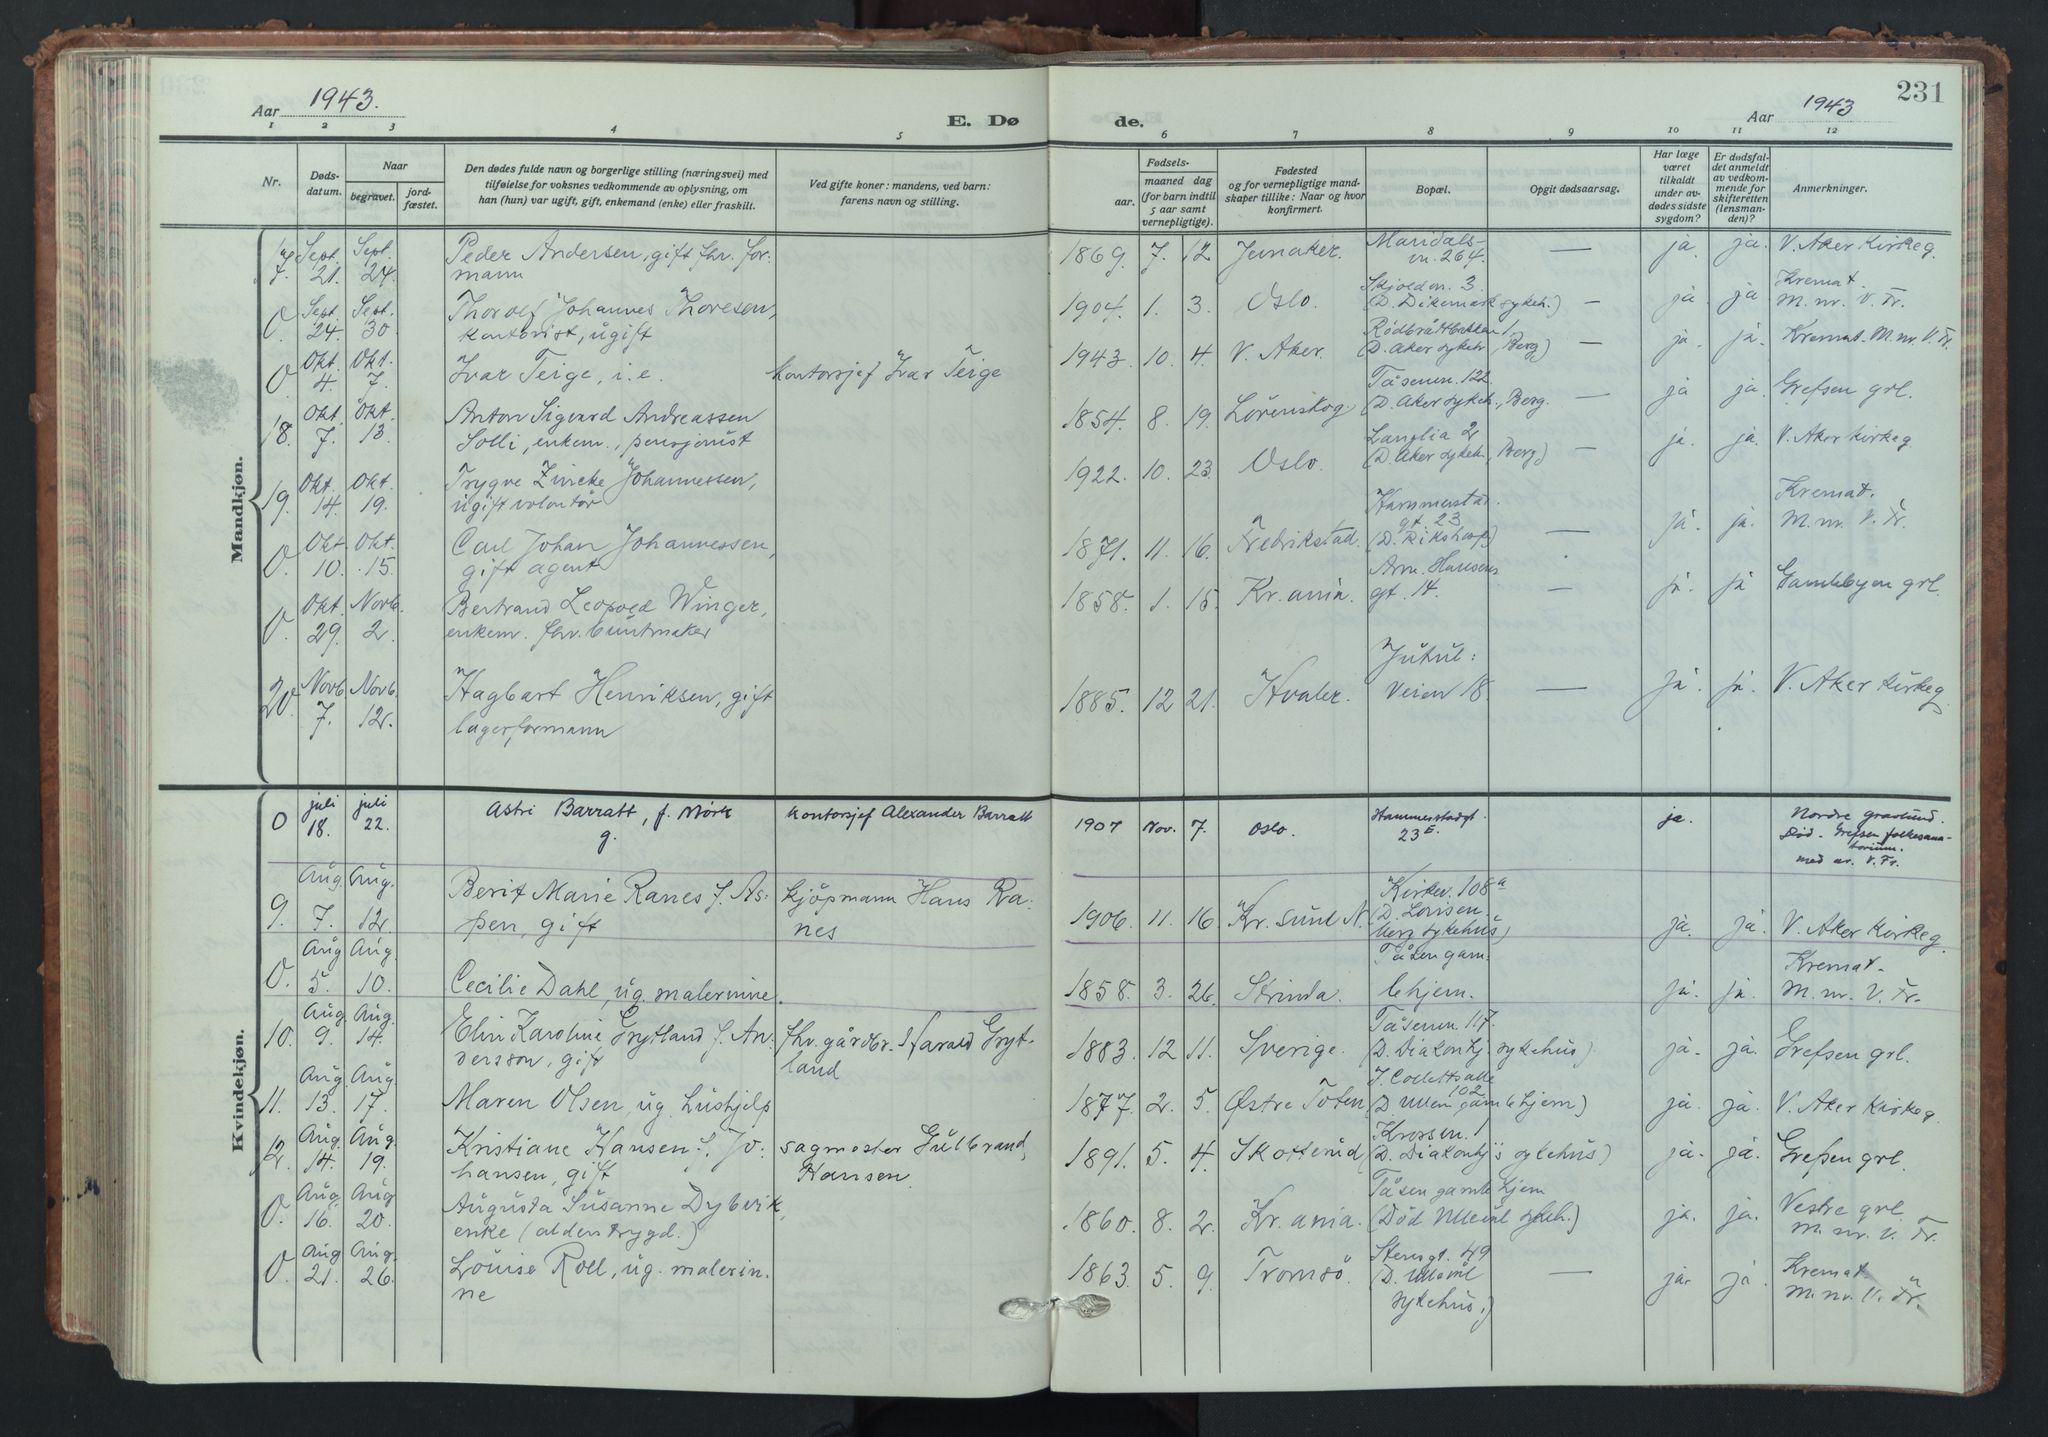 Aar 1943. E. Dø de. Aar 1943 231
1 2 3 4 5 6 7 8 9 10 11 12
Nr. Døds-datum. Naar begravet. jord-fæstet. Den dødes fulde navn og borgerlige stilling (næringsvei) med tilføielse for voksnes vedkommende av oplysning, om han (hun) var ugift, gift, enkemand (enke) eller fraskilt. Ved gifte koner: mandens, ved barn: farens navn og stilling. Fødsels- aar. maaned dag (for barn indtil 5 aar samt vernepligtige). Fødested og for vernepligtige mandskaper tillike: Naar og hvor konfirmert. Bopæl. Opgit dødsaarsag. Har læge været tilkaldt under avdødes sidste sygdom? Er dødsfaldet anmeldt av vedkommende for skifteretten (lensmanden)? Anmerkninger.
Mandkjøn.
Sept. 21. Sept. 24. Peder Andersen, gift fhv. formann 1869. 7. 12 Jevnaker. Maridalsvn. 264. — ja. ja. V. Aker Kirkeg.
0. Sept. 24. Sept. 30 Thorolf Johannes Thoresen, kontorist, ugift 1904. 1. 3. Oslo. Skjoldvn. 3. (D. Dikemark sykeh.) — ja ja Kremat. M. nr. V. Fr.
0. Okt. 4. Okt. 7. Ivar Teige, i.e. kontorsjef Ivar Teige 1943. 10. 4 V. Aker. Rödbråttbakken 1, (D. Aker sykeh., Berg) — ja. ja. Kremat. M. nr. V. Fr.
18. Okt. 7. Okt. 13. Anton Sigvard Andreassen Solli, enkem., pensjonist 1854. 8. 19. Lørenskog. Tåsenvn. 122. (D. Aker sykeh., Berg. — ja ja. Grefsen grl.
19. Okt. 14. Okt. 19. Trygve Zincke Johannessen, ugift volontør 1922. 10. 23. Oslo. Langlia 2 (D. Aker sykeh., Berg) — ja. ja. V. Aker kirkeg.
0. Okt. 10. Okt. 15. Carl Johan Johannessen, gift agent 1871. 11. 16. Fredrikstad. Hammerstad. gt. 23 (D. Rikshosp) — ja. ja. Kremat. M. nr. V. Fr.
0. Okt. 29. Novb. 2. Bertrand Leopold Winger, enkem. fhv. buntmaker 1858. 1. 15. Kr.ania. Arne Hansens gt. 14. — ja. ja Gamlebyen grl.
20. Novb. 7. Novb. 12. Hagbart Henriksen, gift lagerformann 1885. 12 21. Hvaler. Jutul: veien 18. — ja. ja. V. Aker kirkeg
Kvindekjøn.
0 juli 18. juli 22. Astri Barratt, f. Mørk g. kontorsjef Alexander Barratt 1907 Nov. 7. Oslo. Hammerstadgt. 23 E. ja. Nordre gravlund. Død. Grefsen folkesanatorium. med nr. V. Fr.
9. Aug. 7. Aug. 12. Berit Marie Ranes f. Aspen, gift kjöpmann Hans Ranes 1906. 11. 16 Kr. sund N. Kirkev. 108a (D. Lovisenberg sykehus) ja. ja. V. Aker Kirkeg.
0. Aug 5. Aug. 10. Cecilie Dahl, ug. malerinne. 1858. 3. 26. Strinda. Tåsen gamlehjem. ja. ja. Kremat. M. nr. V. Fr.
10. Aug. 9. Aug. 14. Elin Karoline Grytland f. Andersson, gift fhv. gårdbr. Harald Grytland 1883. 12 11. Sverige. Tåsenvn. 117. (D. Diakonhj. sykehus) ja. ja. Grefsen grl.
11. Aug. 13. Aug. 17. Maren Olsen, ug. hushjelp 1877. 2. 5. Østre Toten J. Colletts alle 102 (D. Ullevi gamlehjem) ja. ja. V. Aker Kirkeg.
12. Aug. 14. Aug. 19. Kristiane Hansen f. Johansen, gift sagmester Gulbrand Hansen. 1891. 5. 4. Skotterud Krossen. 1 (D. Diakonhj's sykehus) ja. ja. Grefsen grl.
0. Aug. 16. Aug. 20. Augusta Susanne Dybvik, enke (alderstrygd.) 1860. 8. 2. Kr. ania. Tåsen gamlehjem (Död Ullevål sykeh.) ja. ja. Vestre grl. M. nr. V. Fr.
0. Aug 21. Aug. 26. Louise Roll, ug. malerinne 1863. 5. 9. Tromsö. Stensgt. 49 (D. Ullevål sykehus.) — ja. ja. Kremat. M. nr. V. Fr.